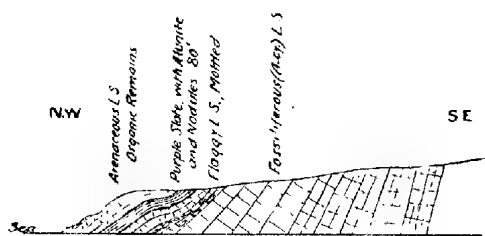 N.W
Arenaceous L S
Organic Remains
Purple Slate, with Alunite
and Nodules 80'
Flaggy L S., Mottled
Fossiliferous L S
S E
Sea